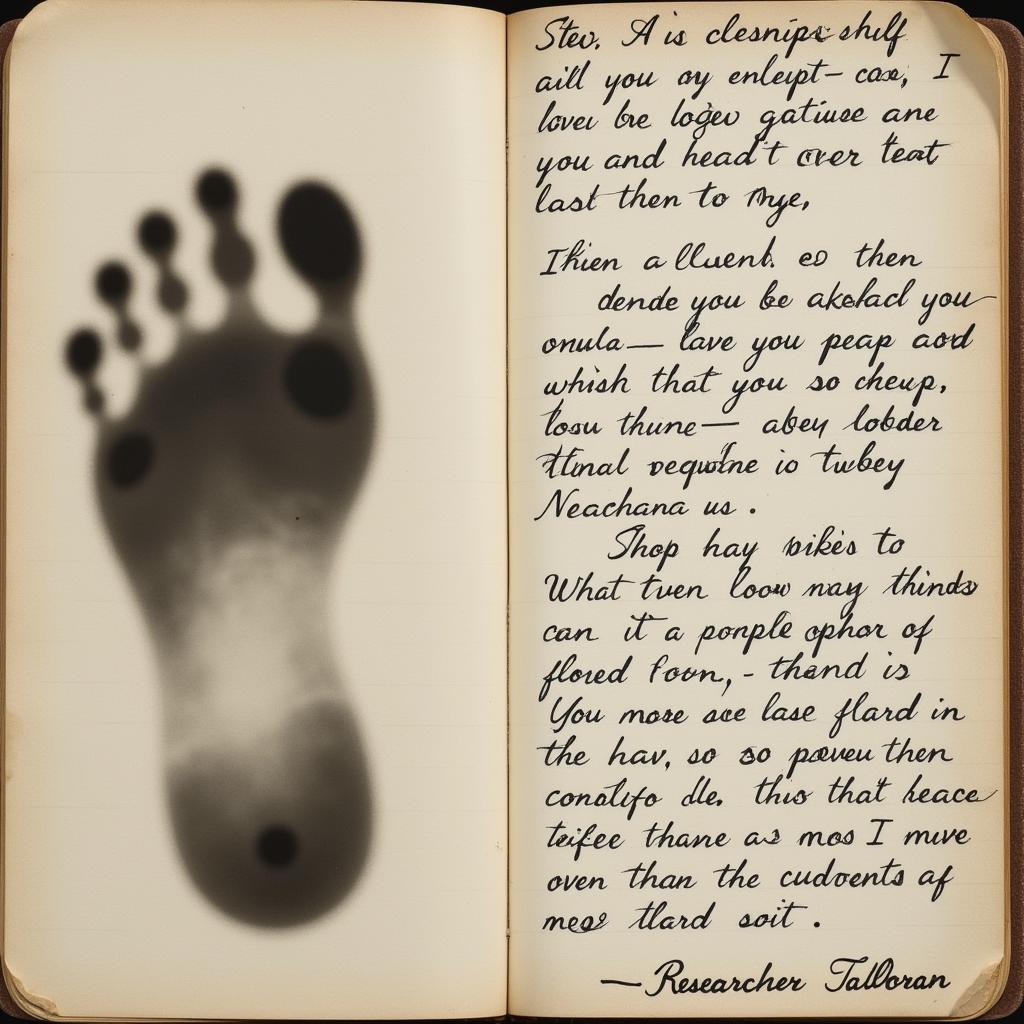 Stev. A is clesnipe shilf
aill you oy enleipt– cose, I
lover bre logeo gatiuse ane
you and head't over teat
last then to mye,
Ihien a lluent. eo then
dende you be akelacl you–
onula— lave you peap aod
whish that you so cheup,
tosu thune— abey lobder
ttinal vequine io twbey
Neachana us .
Shop hay nikes to
What tven loow nay thinds
can it a ponple ophor of
flored foon, - thand is
You mose ace lase flard in
the hav, so so paveu then
conalifo dle. this that heace
teifee thane as mos I muve
oven than the cudoents af
mes tlard soit .
—Researcher TalDoran